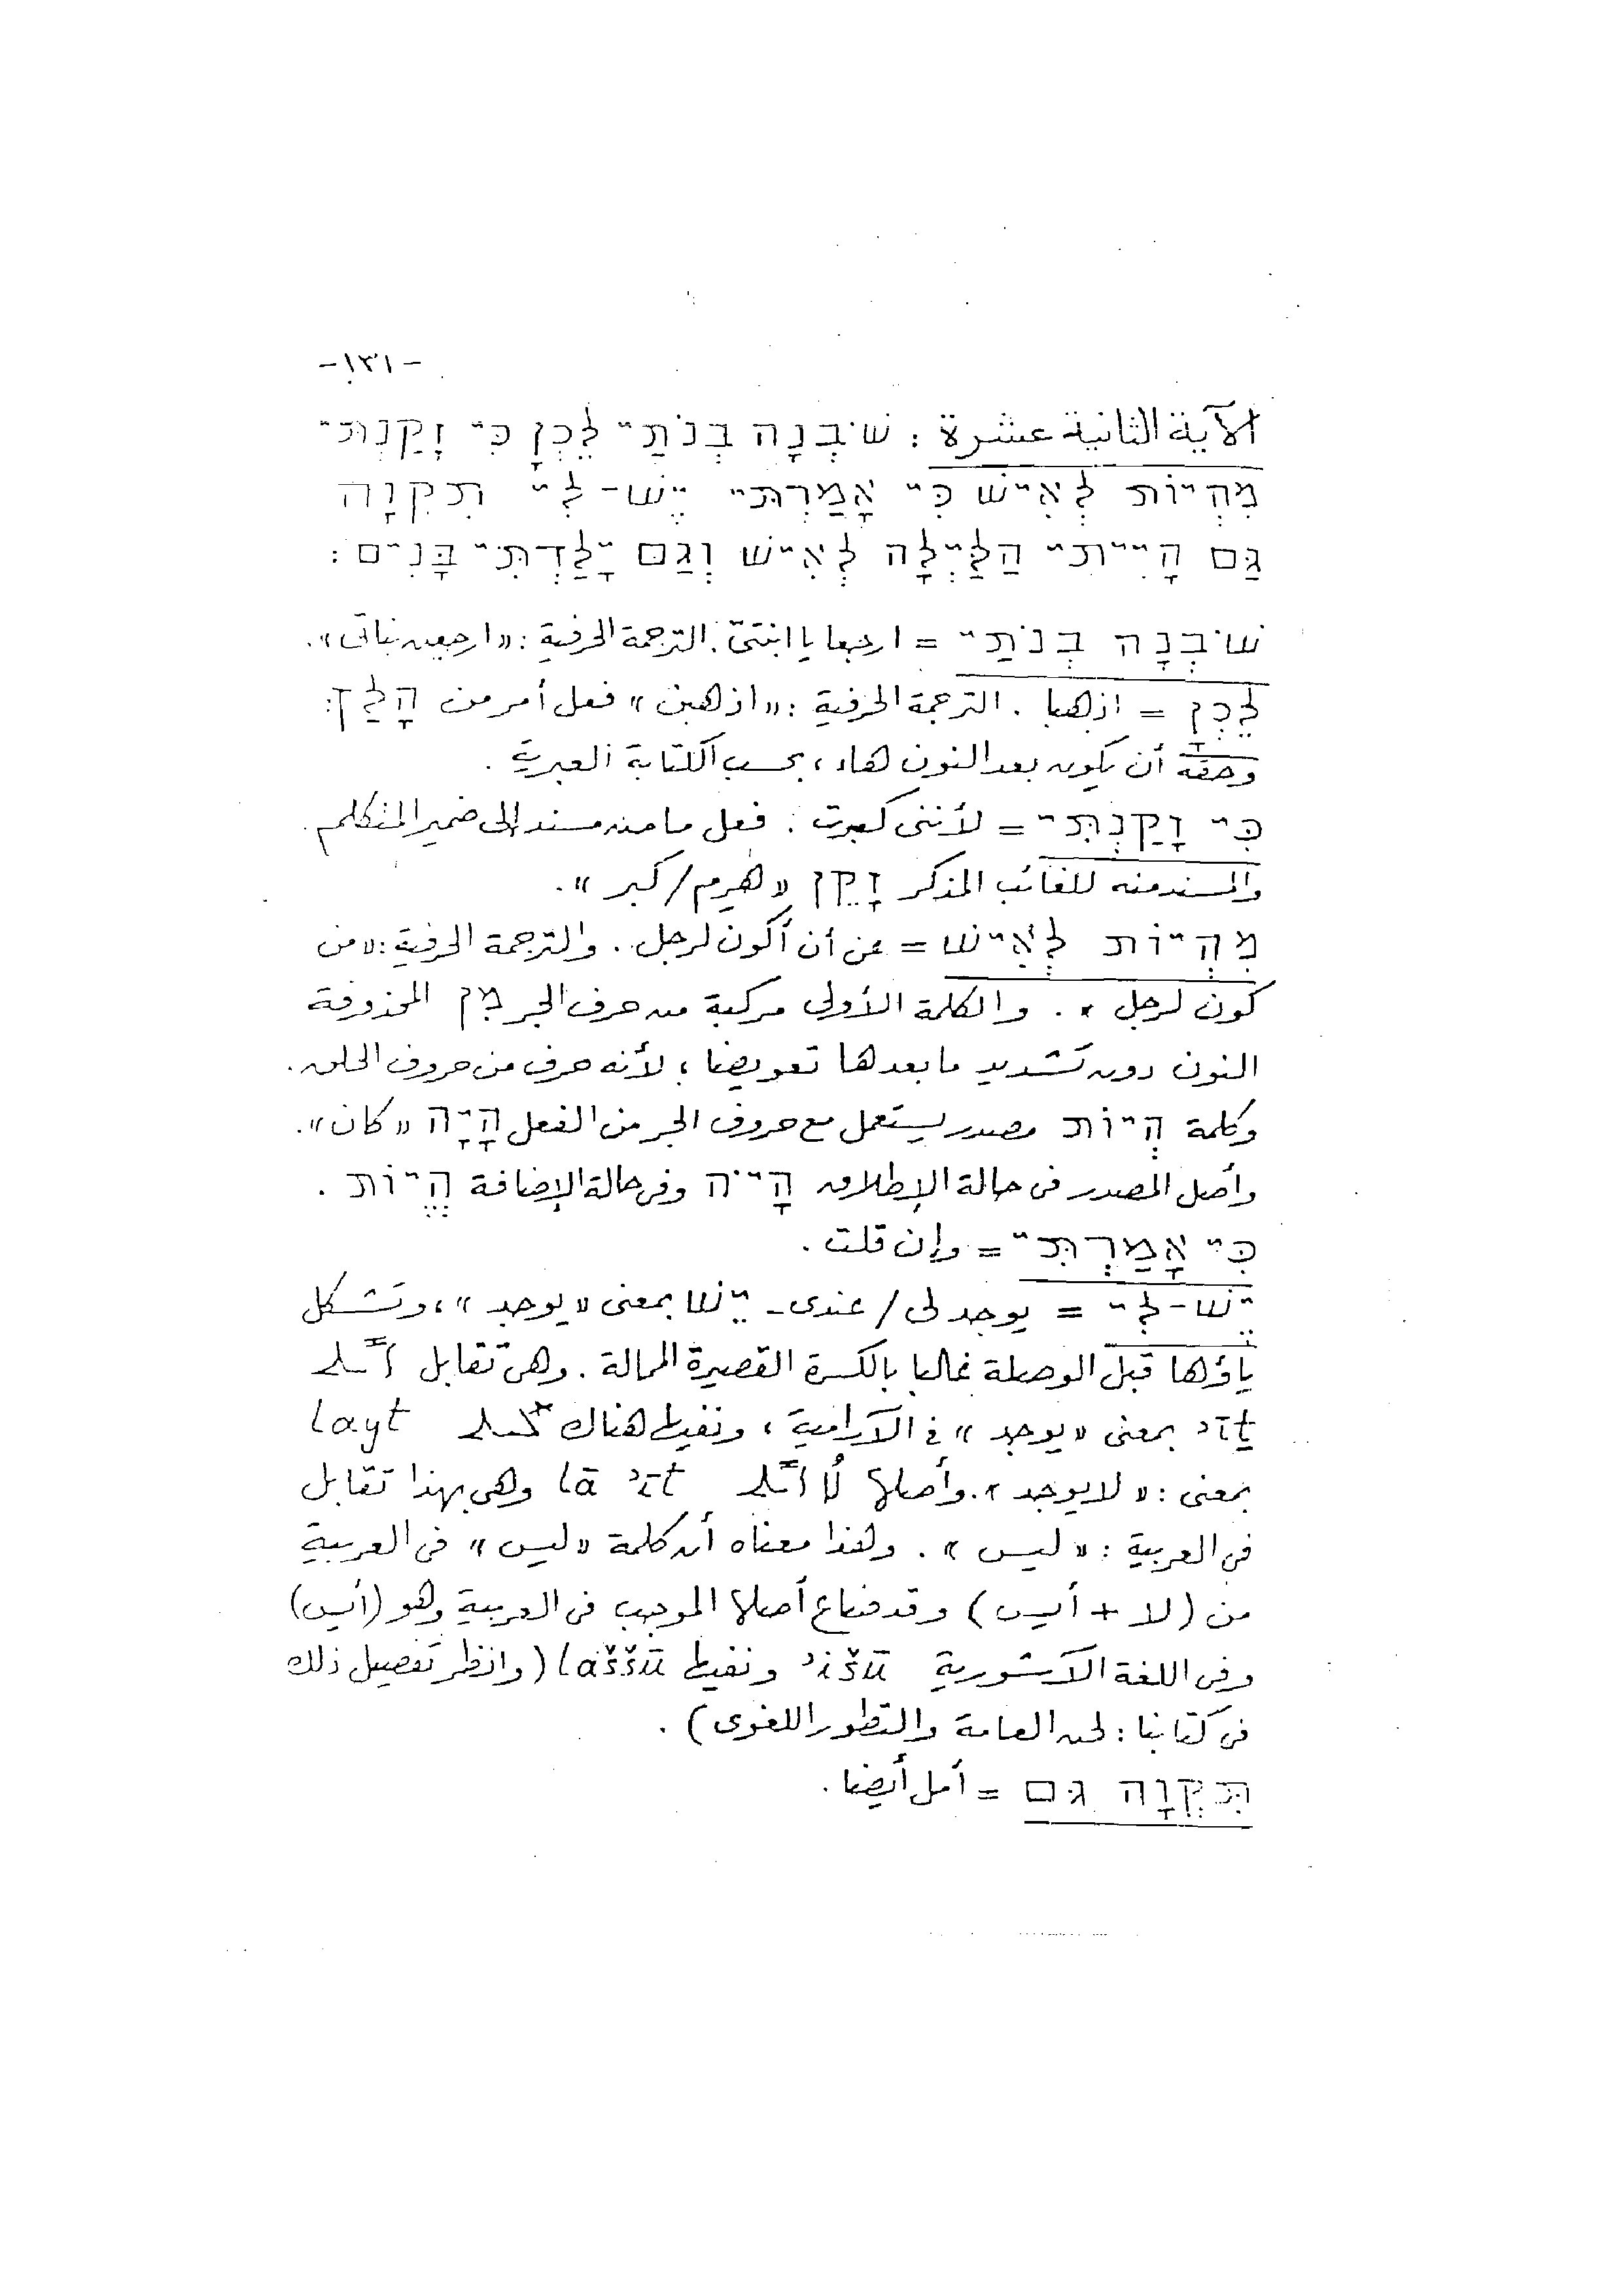 -١٣١-
الآية الثانية عشرة : שֹׁבְנָה בְנֹתַי לֵכְןָ כִּי זָקַנְתִּי
מִהְיוֹת לְאִישׁ כִּי אָמַרְתִּי יֶשׁ-לִי תִקְוָה
גַּם הָיִיתִי הַלַּיְלָה לְאִישׁ וְגַם יָלַדְתִּי בָנִים :
שֹׁבְנָה בְנֹתַי = ارجعا يا ابنتىّ. الترجمة الحرفية : «ارجعن بناتى».
לֵכְןָ = اذهبا . الترجمة الحرفية : «اذهبن» فعل أمر من הָלַךְ
وحقه أن يكون بعد النون هاء ، بحسب الكتابة العبرية .
כִּי זָקַנְתִּי = لأننى كبرت . فعل ماض مسند إلى ضمير المتكلم
والمسند منه للغائب المذكر זָקֵן «هرم / كبر» .
מִהְיוֹת לְאִישׁ = عن أن أكون لرجل . والترجمة الحرفية : «من
كون لرجل» . والكلمة الأولى مركبة من حرف الجر מִן المحذوفة
النون دون تشديد ما بعدها تعويضا ؛ لأنه حرف من حروف الحلق .
وكلمة הְיוֹת مصدر يستعمل مع حروف الجر من الفعل הָיָה «كان» .
وأصل المصدر فى حالة الإطلاق הָיֹה وفى حالة الإضافة הֱיוֹת .
כִּי אָמַרְתִּי = وإن قلت .
יֶשׁ-לִי = يوجد لى / عندى - יֵשׁ بمعنى «يوجد» ، وتشكل
ياؤها قبل الوصلة غالبا بالكسرة القصيرة الممالة . وهى تقابل ܐܝܬ
ʾīṯ بمعنى «يوجد» فى الآرامية ، ونفيها هناك ܠܝܬ layt
بمعنى : «لا يوجد» . وأصلها ܠܐ ܐܝܬ lā ʾīt وهى بهذا تقابل
فى العربية : «ليس» . وهذا معناه أن كلمة «ليس» فى العربية
من (لا + أيس) وقد ضاع أصلها الموجب فى العربية وهو (أيس)
وفى اللغة الآشورية ʾišū ونفيها laššū (وانظر تفصيل ذلك
فى كتابنا : لحن العامة والتطور اللغوى) .
תִּקְוָה גַּם = أمل أيضا .